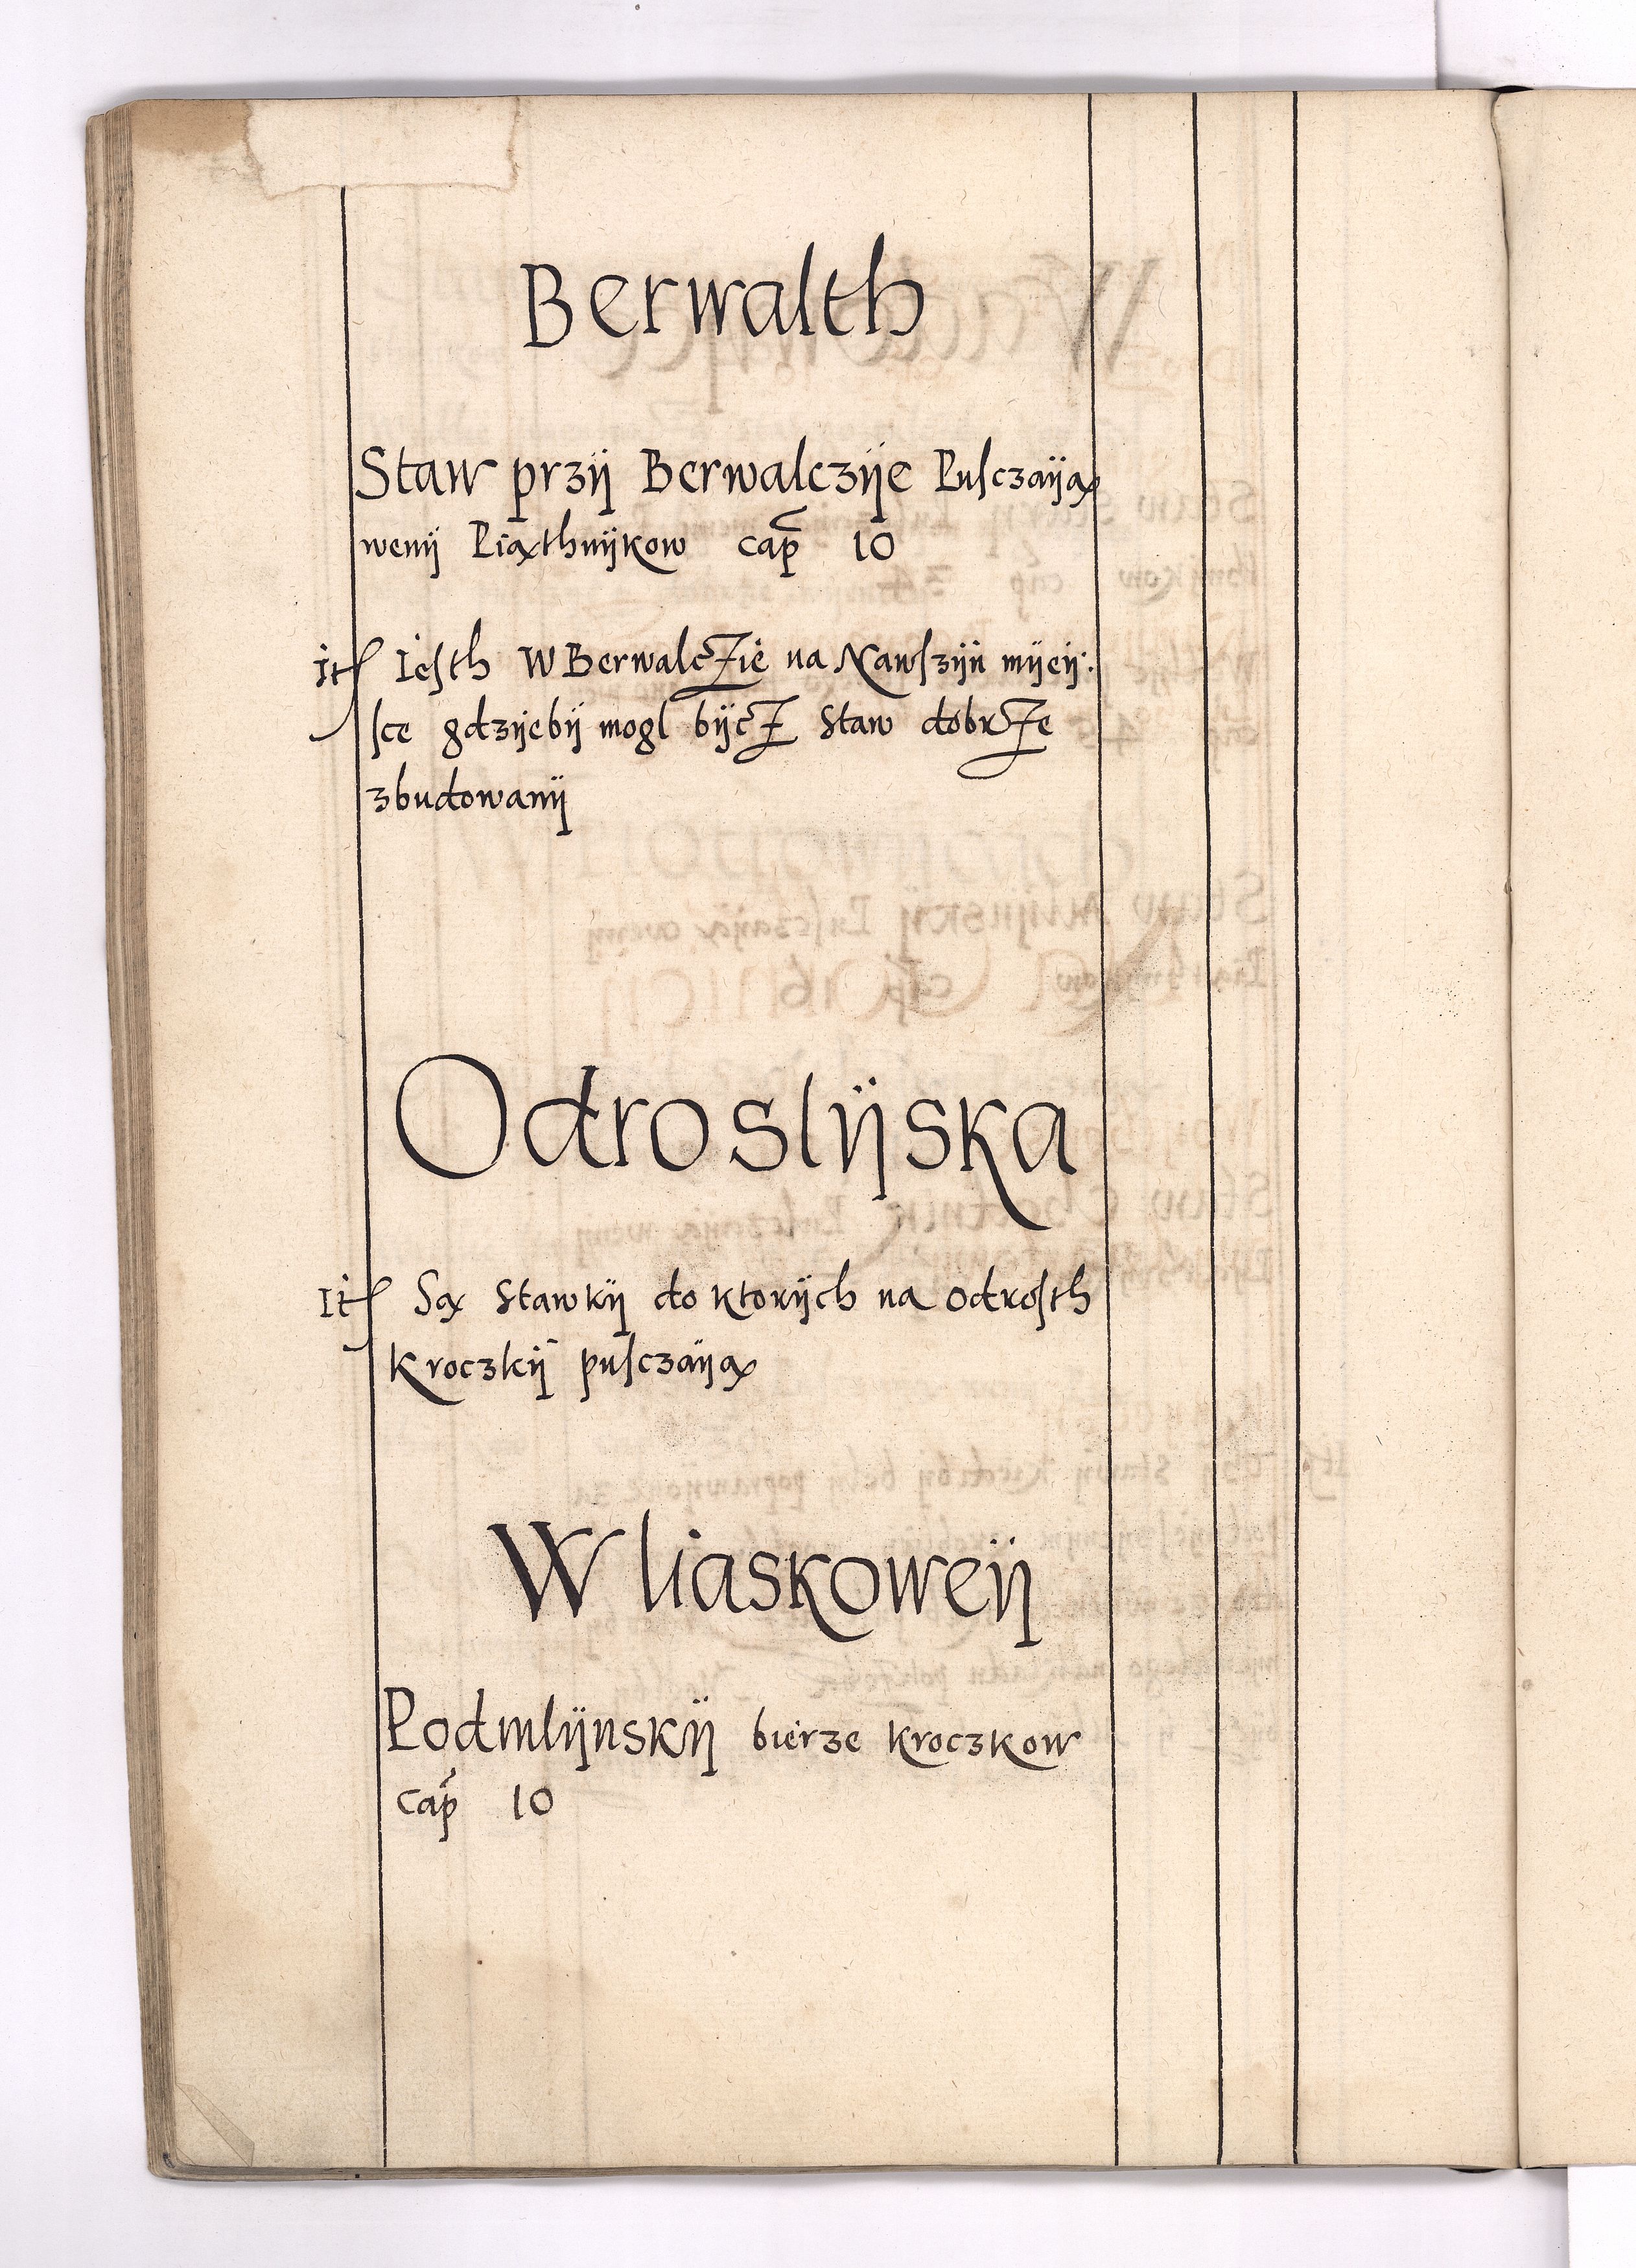 Berwalth
Staw przÿ Berwalczÿe Puſczaÿą
wenÿ Piąthnÿkow cap̃ 10
It Ieſth W Berwalczie na Nawſzÿn mÿeÿ:
ſce gdzÿebÿ mogl bÿcz Staw dobrze
zbudowanÿ
Odroslÿska
It Są Stawkÿ do ktorÿch na odroſth
Kroczkÿ puſczaÿą
W liaskoweÿ
Podmlÿnskÿ bierze Kroczkow
cap̃ 10